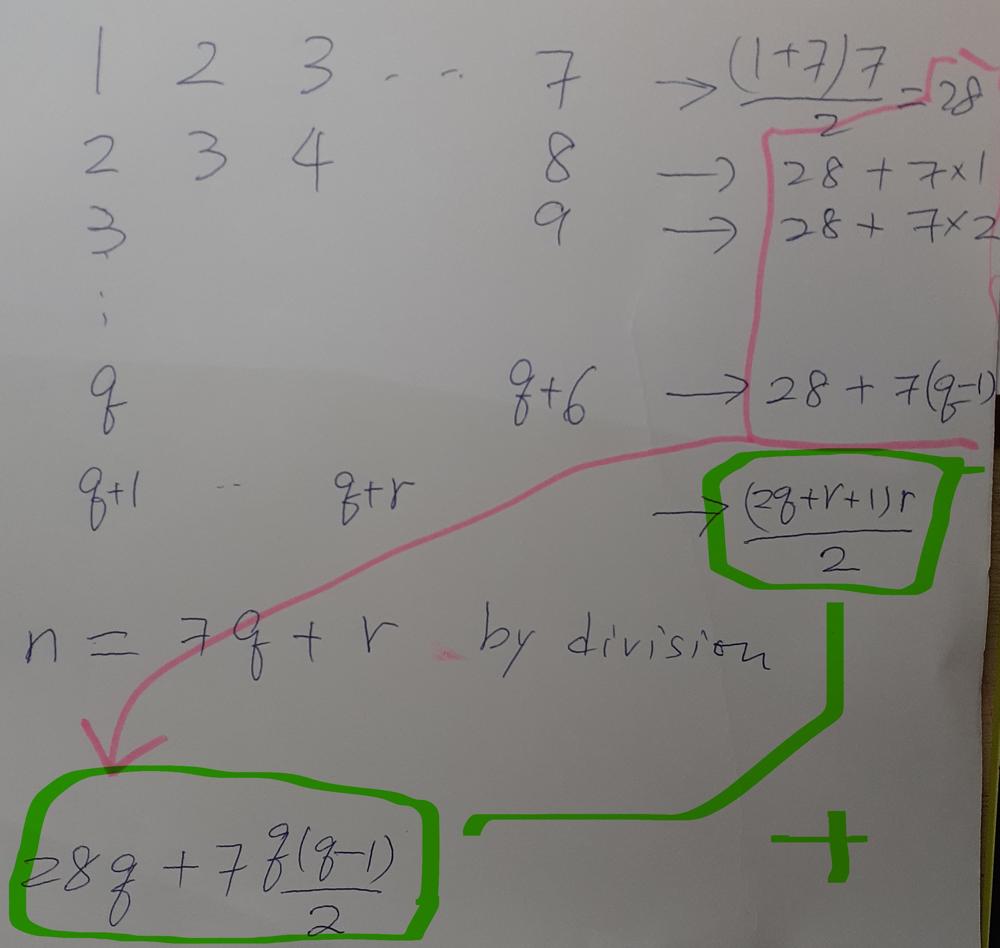 1 2 3 - - 7 → (1+7)7/2 = 28
2 3 4 8 → 28 + 7×1
3 9 → 28 + 7×2
⋮
q q+6 → 28 + 7(q-1)
q+1 -- q+r → (2q+r+1)r/2
n = 7q + r by division
+
28q + 7 q(q-1)/2